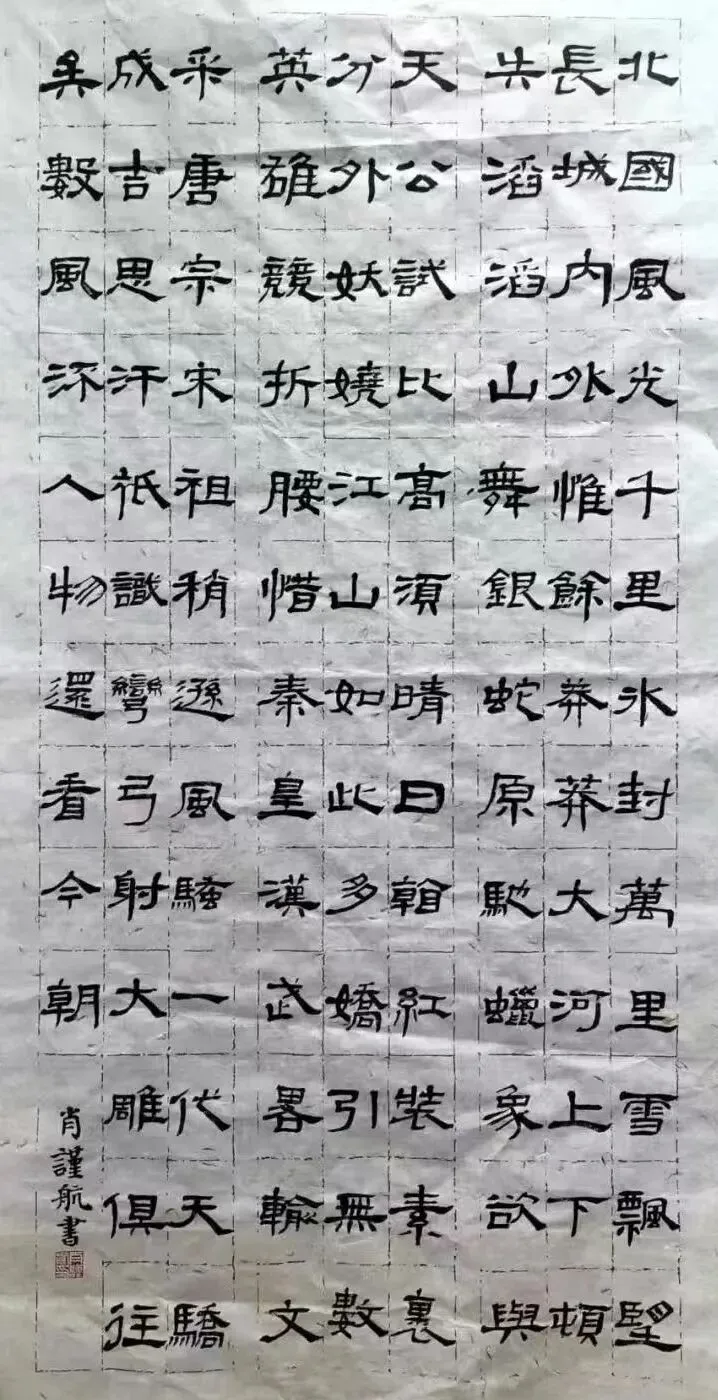 北國風光千里冰封萬里雪飄望
長城內外惟餘莽莽大河上下頓
失滔滔山舞銀蛇原馳蠟象欲與
天公試比高須晴日看紅裝素裹
分外妖嬈江山如此多嬌引無數
英雄競折腰惜秦皇漢武畧輸文
采唐宗宋祖稍遜風騷一代天驕
成吉思汗祇識彎弓射大雕俱往
矣數風流人物還看今朝
肖謹航書